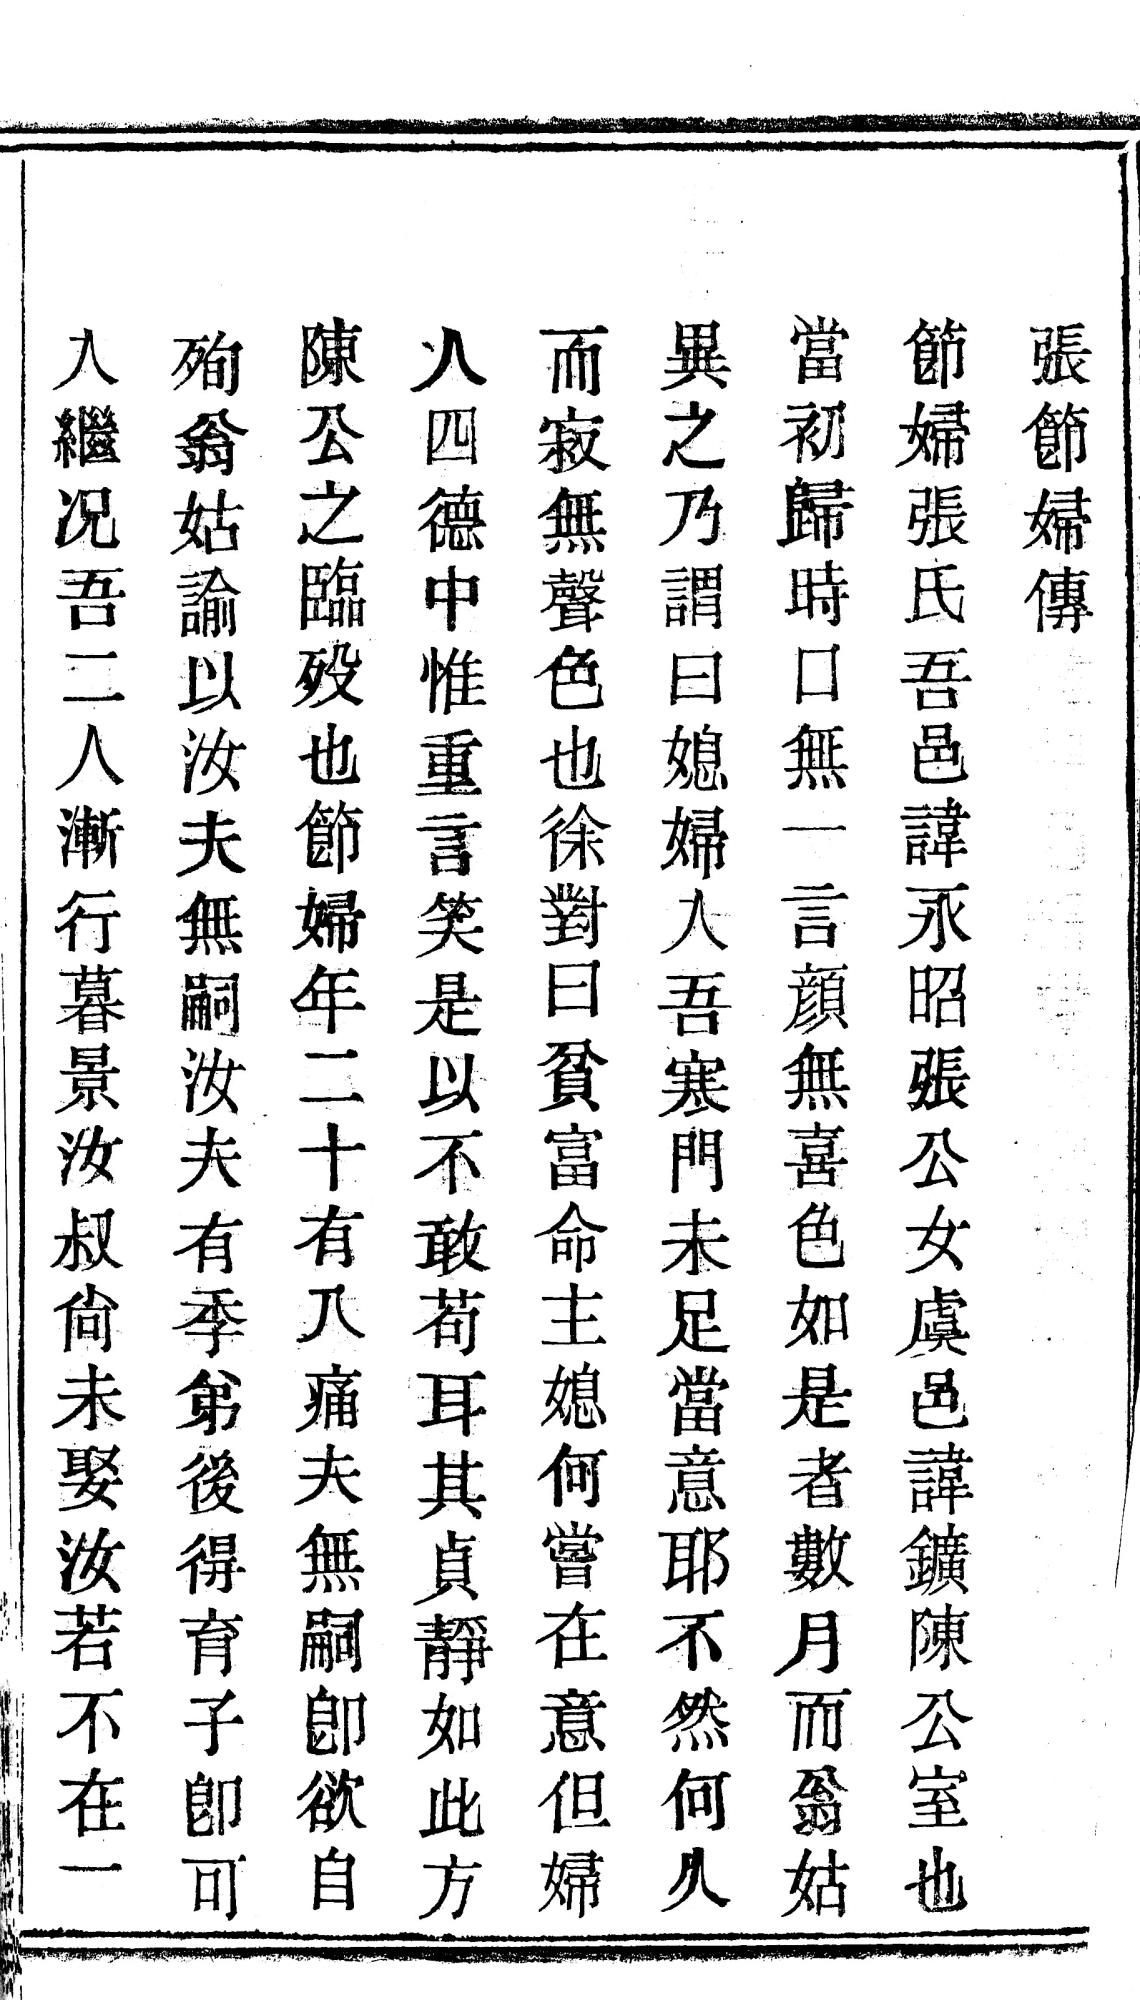 張節婦傳
節婦張氏吾邑諱永昭張公女虞邑諱鑛陳公室也
當初歸時口無一言顔無喜色如是者數月而翁姑
異之乃謂曰媳婦人吾寒門未足當意耶不然何久
而寂無聲色也徐對曰貧富命主媳何嘗在意但婦
人四德中惟重言笑是以不敢苟耳其貞靜如此方
陳公之臨殁也節婦年二十有八痛夫無嗣卽欲自
殉翁姑諭以汝夫無嗣汝夫有季弟後得育子卽可
入繼况吾二人漸行暮景汝叔尙未娶汝若不在一